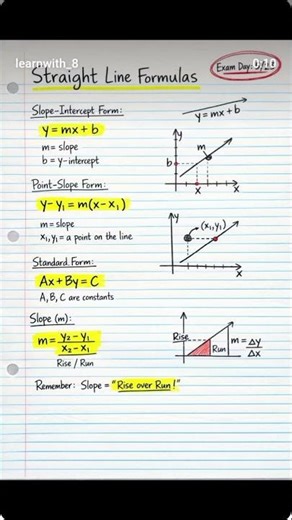 learnwith_8
0:10
Exam Day:
Straight Line Formulas
Slope-Intercept Form:
y = mx + b
m = slope
b = y-intercept
y = mx + b
y
m
b
x
x
Point-Slope Form:
y - y₁ = m(x - x₁)
m = slope
x₁, y₁ = a point on the line
y
(x₁, y₁)
x
Standard Form:
Ax + By = C
A, B, C are constants
Slope (m):
m = y₂ - y₁
x₂ - x₁
Rise / Run
Rise
Run
m = Δy
Δx
Remember: Slope = "Rise over Run!"